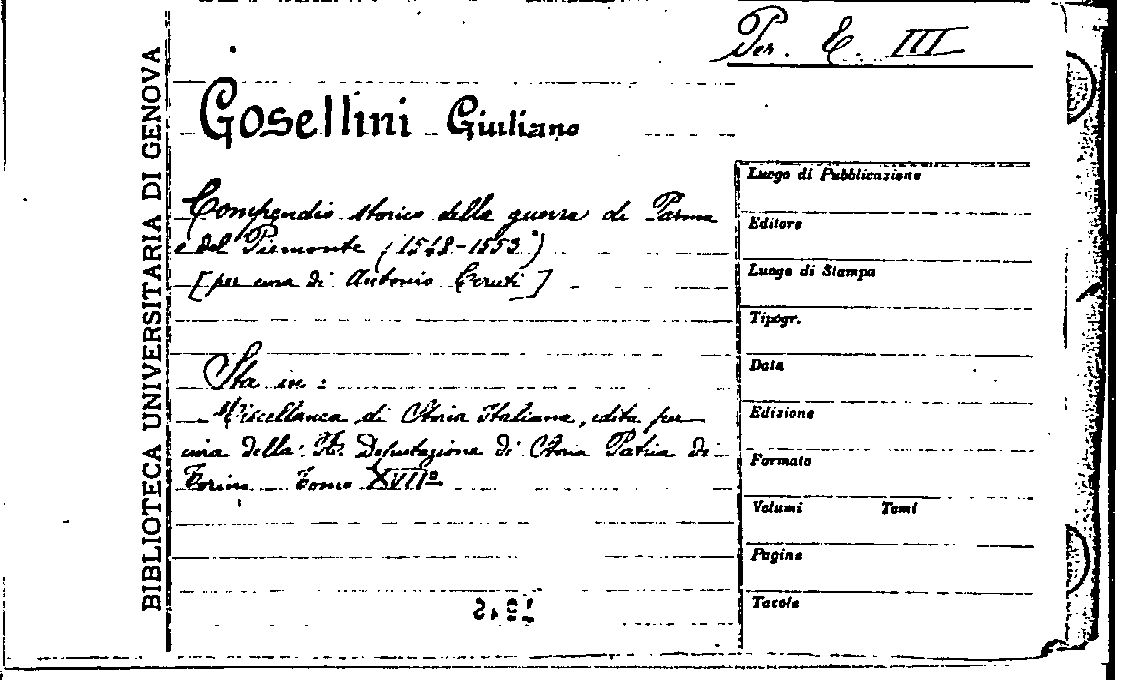 Per. E. III
BIBLIOTECA UNIVERSITARIA DI GENOVA
Gosellini Giuliano
Compendio storico della guerra di Parma
e del Piemonte (1548-1553)
[per cura di Antonio Ceruti]
Sta in:
Miscellanea di Storia Italiana, edita per
cura della R. Deputazione di Storia Patria di
Torino Tomo XVIIº
Luogo di Pubblicazione
Editore
Luogo di Stampa
Tipogr.
Data
Edizione
Formato
Volumi Tomi
Pagine
Tavole